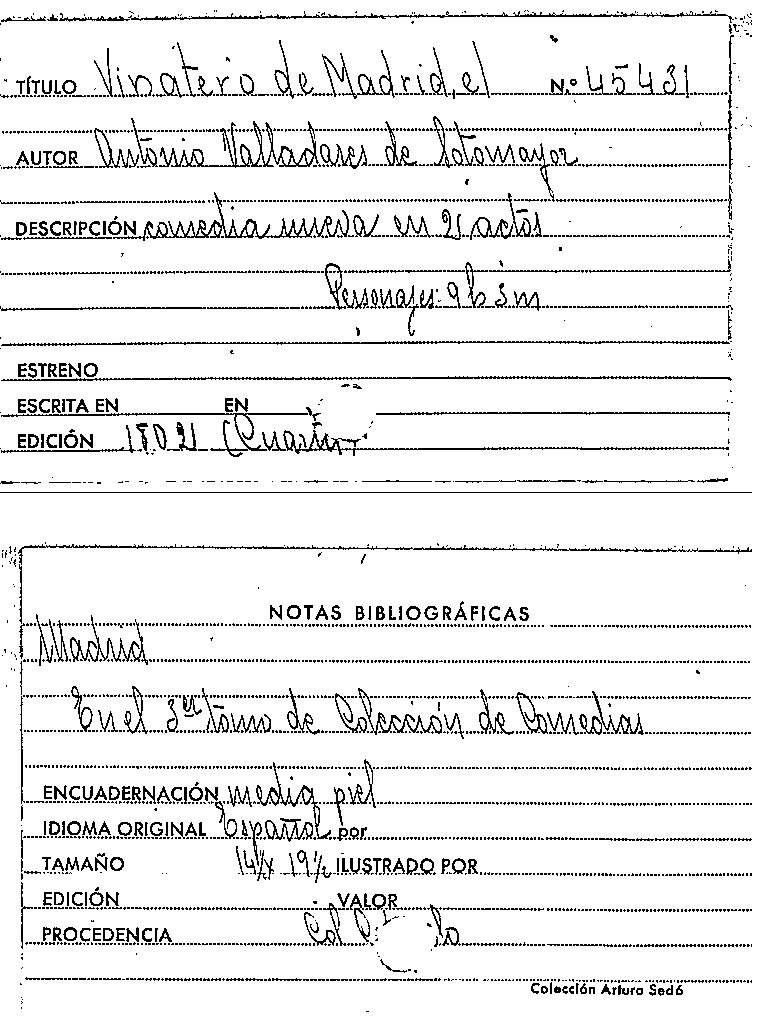 TÍTULO Vinatero de Madrid, el N.º 45431
AUTOR Antonio Valladares de Sotomayor
DESCRIPCIÓN comedia nueva en 2 actos
Personajes: 9 h 3 m
ESTRENO
ESCRITA EN EN
EDICIÓN 1802
NOTAS BIBLIOGRÁFICAS
Madrid
En el 3er tomo de Colección de Comedias
ENCUADERNACIÓN media piel
IDIOMA ORIGINAL Español por
TAMAÑO 14½ x 19½ ILUSTRADO POR
EDICIÓN VALOR
PROCEDENCIA Col
Colección Arturo Sedó